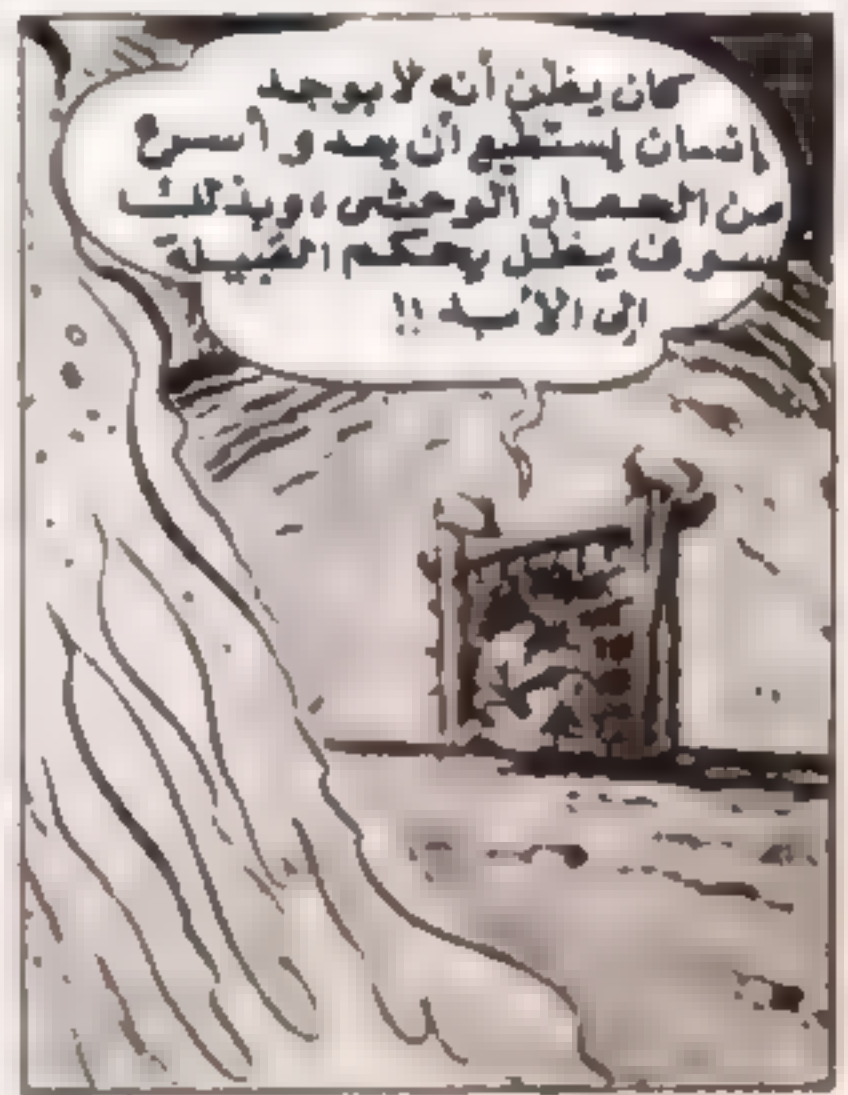 كان يظن أنه لا يوجد
إنسان يستطيع أن يعدو أسرع
من الحمار الوحشى ، وبذلك
سوف يظل يحكم القبيلة
إلى الأبد !!